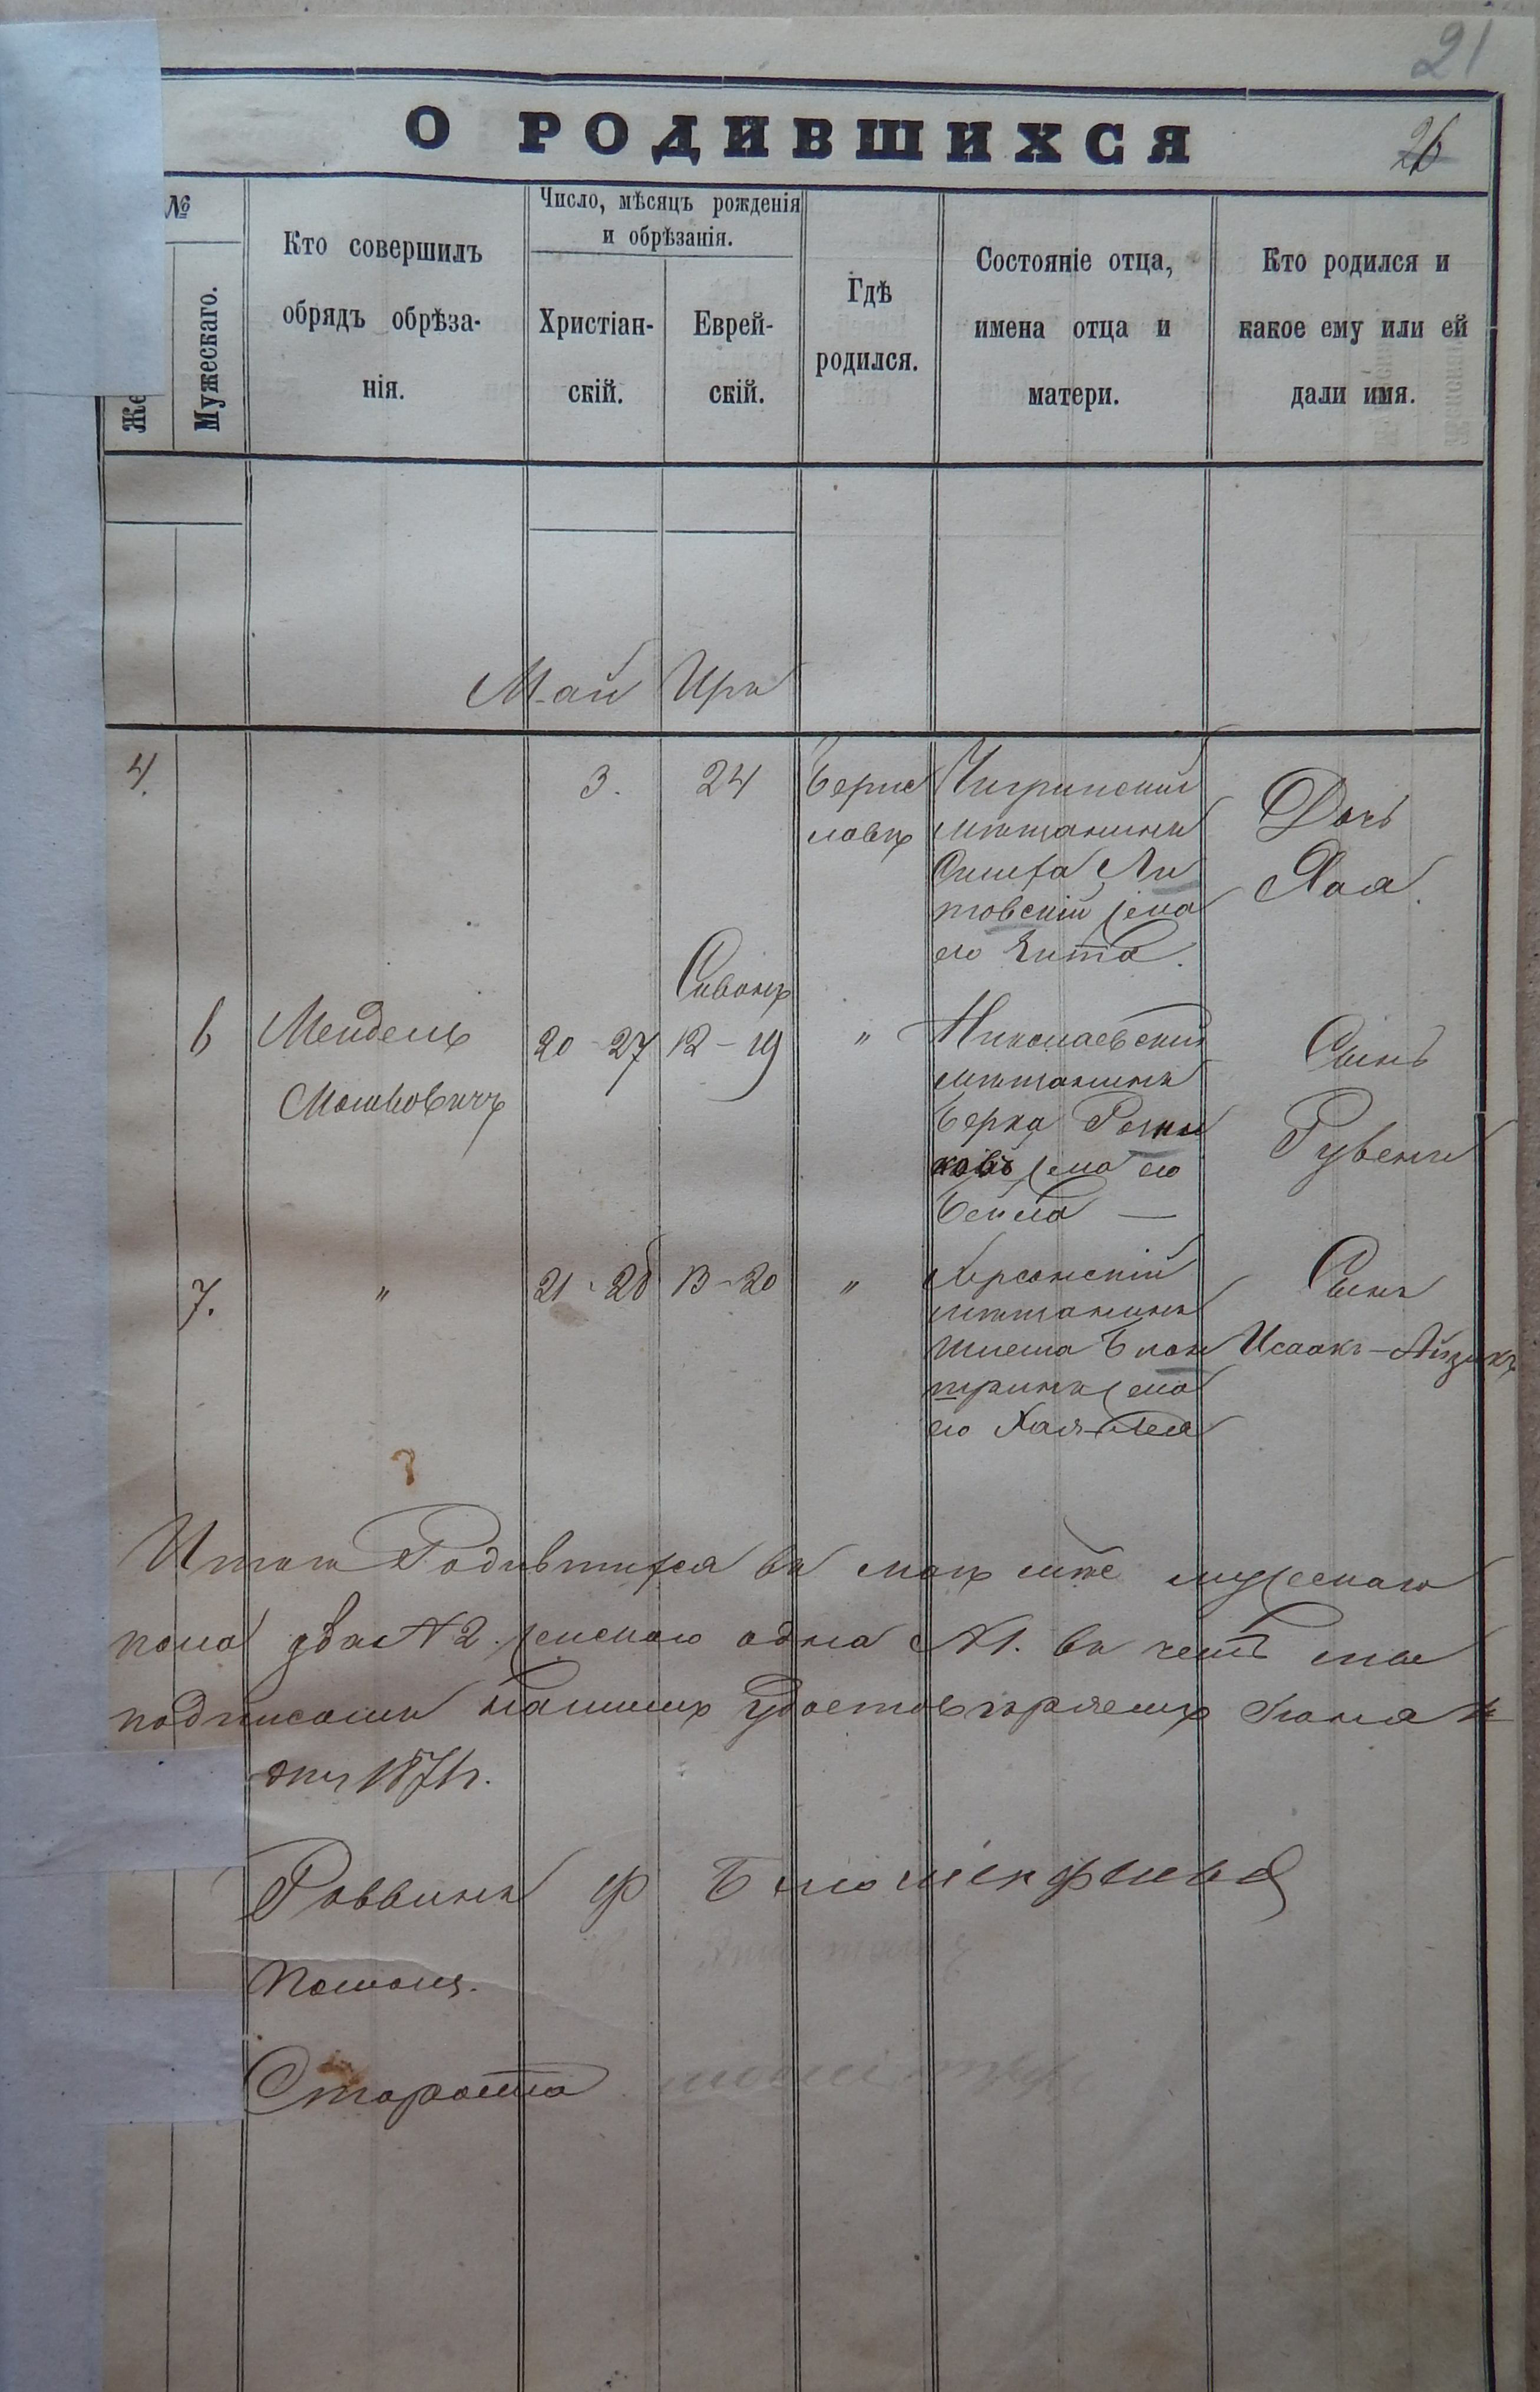 21
О РОДИВШИХСЯ
26
№
Же
Мужескаго.
Кто совершилъ
обрядъ обрѣза-
нія.
Число, мѣсяцъ рожденія
и обрѣзанія.
Христіан-
скій.
Еврей-
скій.
Гдѣ
родился.
Состояніе отца,
имена отца и
матери.
Кто родился и
какое ему или ей
дали имя.
Май Иръ
4. 3. 24
Берис
лавъ
Чигринский
мещанинъ
Ли
товский жена
его Ента.
Дочь
Хая.
6 Мендель
Мошковичъ
20-27
Сиванъ
12-19
"
Николаевский
мещанинъ
Берко
ковъ жена его
Бейла —
Сынъ
Рувенъ
7. " 21-28 13-20 "
Херсонскій
мещанинъ
Шлема
жена
его Хая-Лея
Сынъ
Исаакъ-Айзикъ
Итого Родившихся въ маѣ м-цѣ мужескаго
пола два №2. женскаго одна №1. въ чемъ мы
подписомъ нашимъ удостовѣряемъ Іюня
дня 1871 г.
Раввинъ Ф
Помощ.
Староста